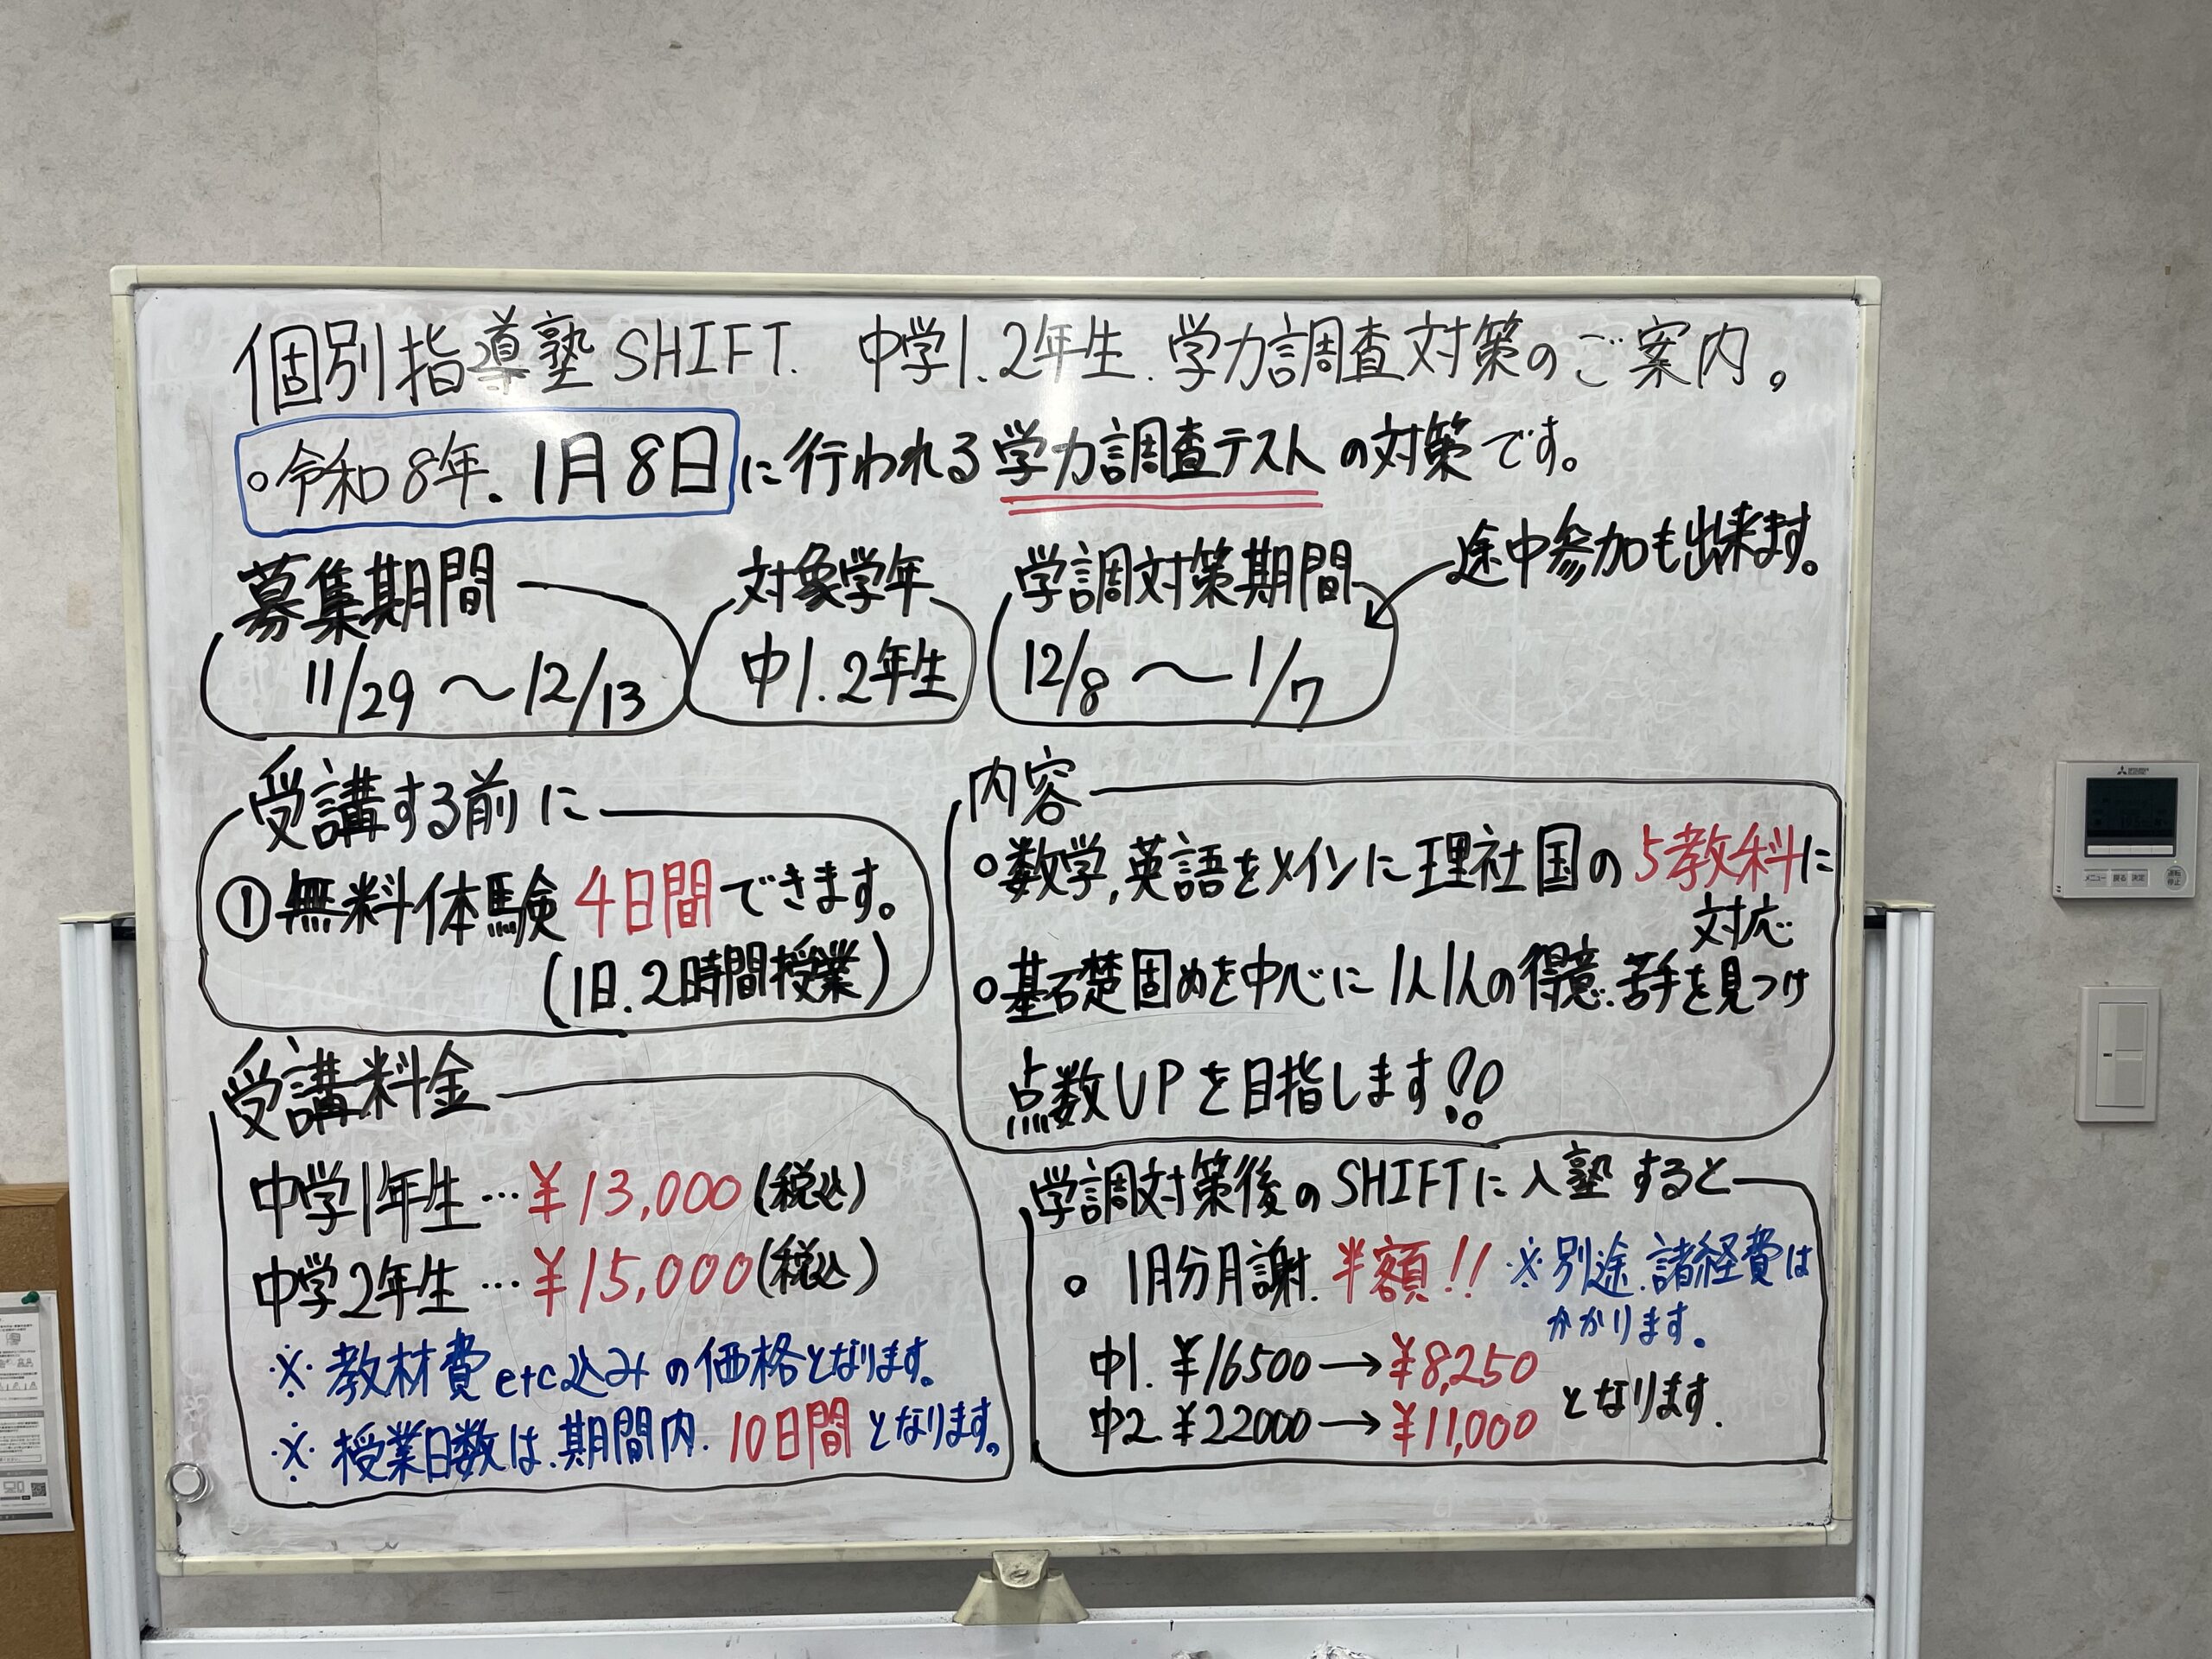 個別指導塾SHIFT. 中学1.2年生.学力調査対策のご案内。
○令和8年.1月8日に行われる学力調査テストの対策です。
募集期間
11/29～12/13
対象学年
中1.2年生
学調対策期間
12/8～1/7
途中参加も出来ます。
受講する前に
①無料体験4日間できます。
(1日.2時間授業)
内容
○数学,英語をメインに理社国の5教科に
対応
○基礎固めを中心に1人1人の得意.苦手を見つけ
点数UPを目指します!!
受講料金
中学1年生…¥13,000(税込)
中学2年生…¥15,000(税込)
※教材費etc込みの価格となります。
※授業日数は.期間内.10日間となります。
学調対策後のSHIFTに入塾すると
○1月分月謝.半額!!※別途.諸経費は
かかります。
中1.¥16500→¥8,250
中2.¥22000→¥11,000
となります.
MITSUBISHI ELECTRIC
メニュー 戻る 決定 運転 停止